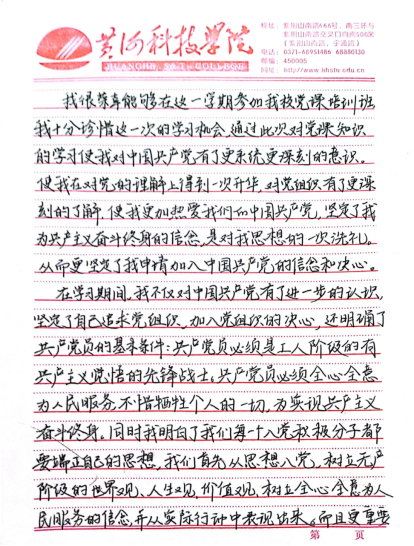 黄河科技学院
HUANGHE S&T COLLEGE
电话: 0371-68951486 68880130
邮编: 450005
我很荣幸能够在这一学期参加我校党课培训班
我十分诊惜这一次的学习机会,通过此次对党课知识
的学习使我对中国共产党有了更系统更深刻的意识。
使我在对党的理解上得到一次升华,对党组织有了更深
刻的了解,使我更加热爱我们的中国共产党,坚定了我
为共产主义奋斗终身的信念,是对我思想的一次洗礼。
从而更坚定了我申请加入中国共产党的信念和决心。
在学习期间,我不仅对中国共产党有了进一步的认识,
坚定了自己追求党组织,加入党组织的决心,还明确了
共产党员的基本条件:共产党员必须是工人阶级的有
共产主义觉悟的先锋战士,共产党员必须全心全意
为人民服务不惜牺牲个人的一切,为实现共产主义
奋斗终身。同时我明白了我们每一个入党积极分子都
要端正自己的思想,我们首先从思想入党,树立无产
阶级的世界观、人生观,价值观,树立全心全意为人
民服务的信念,并从实际行动中表现出来。而且更重要
第 页